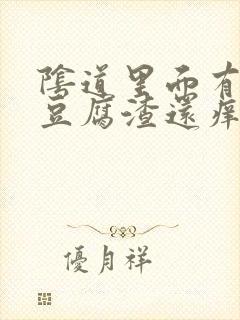 陰道里面有
豆腐渣還痒
優月祥